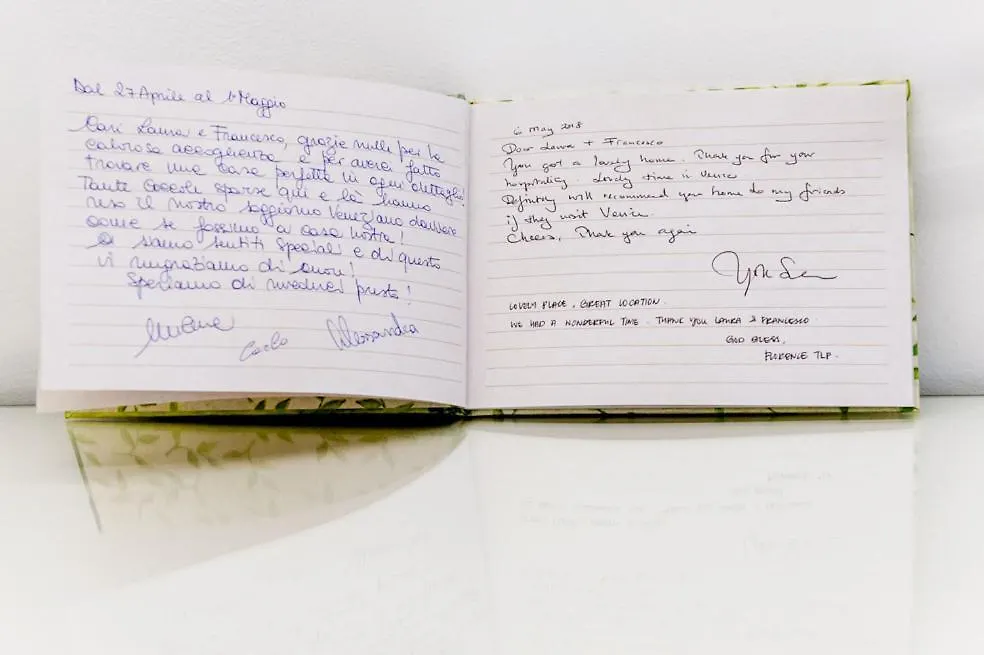 Dal 27 Aprile al 1° Maggio
Cari Laura e Francesco, grazie mille per la
calorosa accoglienza e per averci fatto
trovare una casa perfetta in ogni dettaglio!
Tante coccole sparse qui e là hanno
reso il nostro soggiorno Veneziano davvero
come se fossimo a casa nostra!
Ci siamo sentiti speciali e di questo
vi ringraziamo di cuore!
Speriamo di rivederci presto!
Carlo Alessandra
6 May 2018
Dear Laura + Francesco
You got a lovely home. Thank you for your
hospitality. Lovely time in Venice
Definitely will recommend your home to my friends
if they visit Venice.
Cheers, Thank you again
LOVELY PLACE, GREAT LOCATION.
WE HAD A WONDERFUL TIME. THANK YOU LAURA & FRANCESCO
GOD BLESS,
FLORENCE TLP.